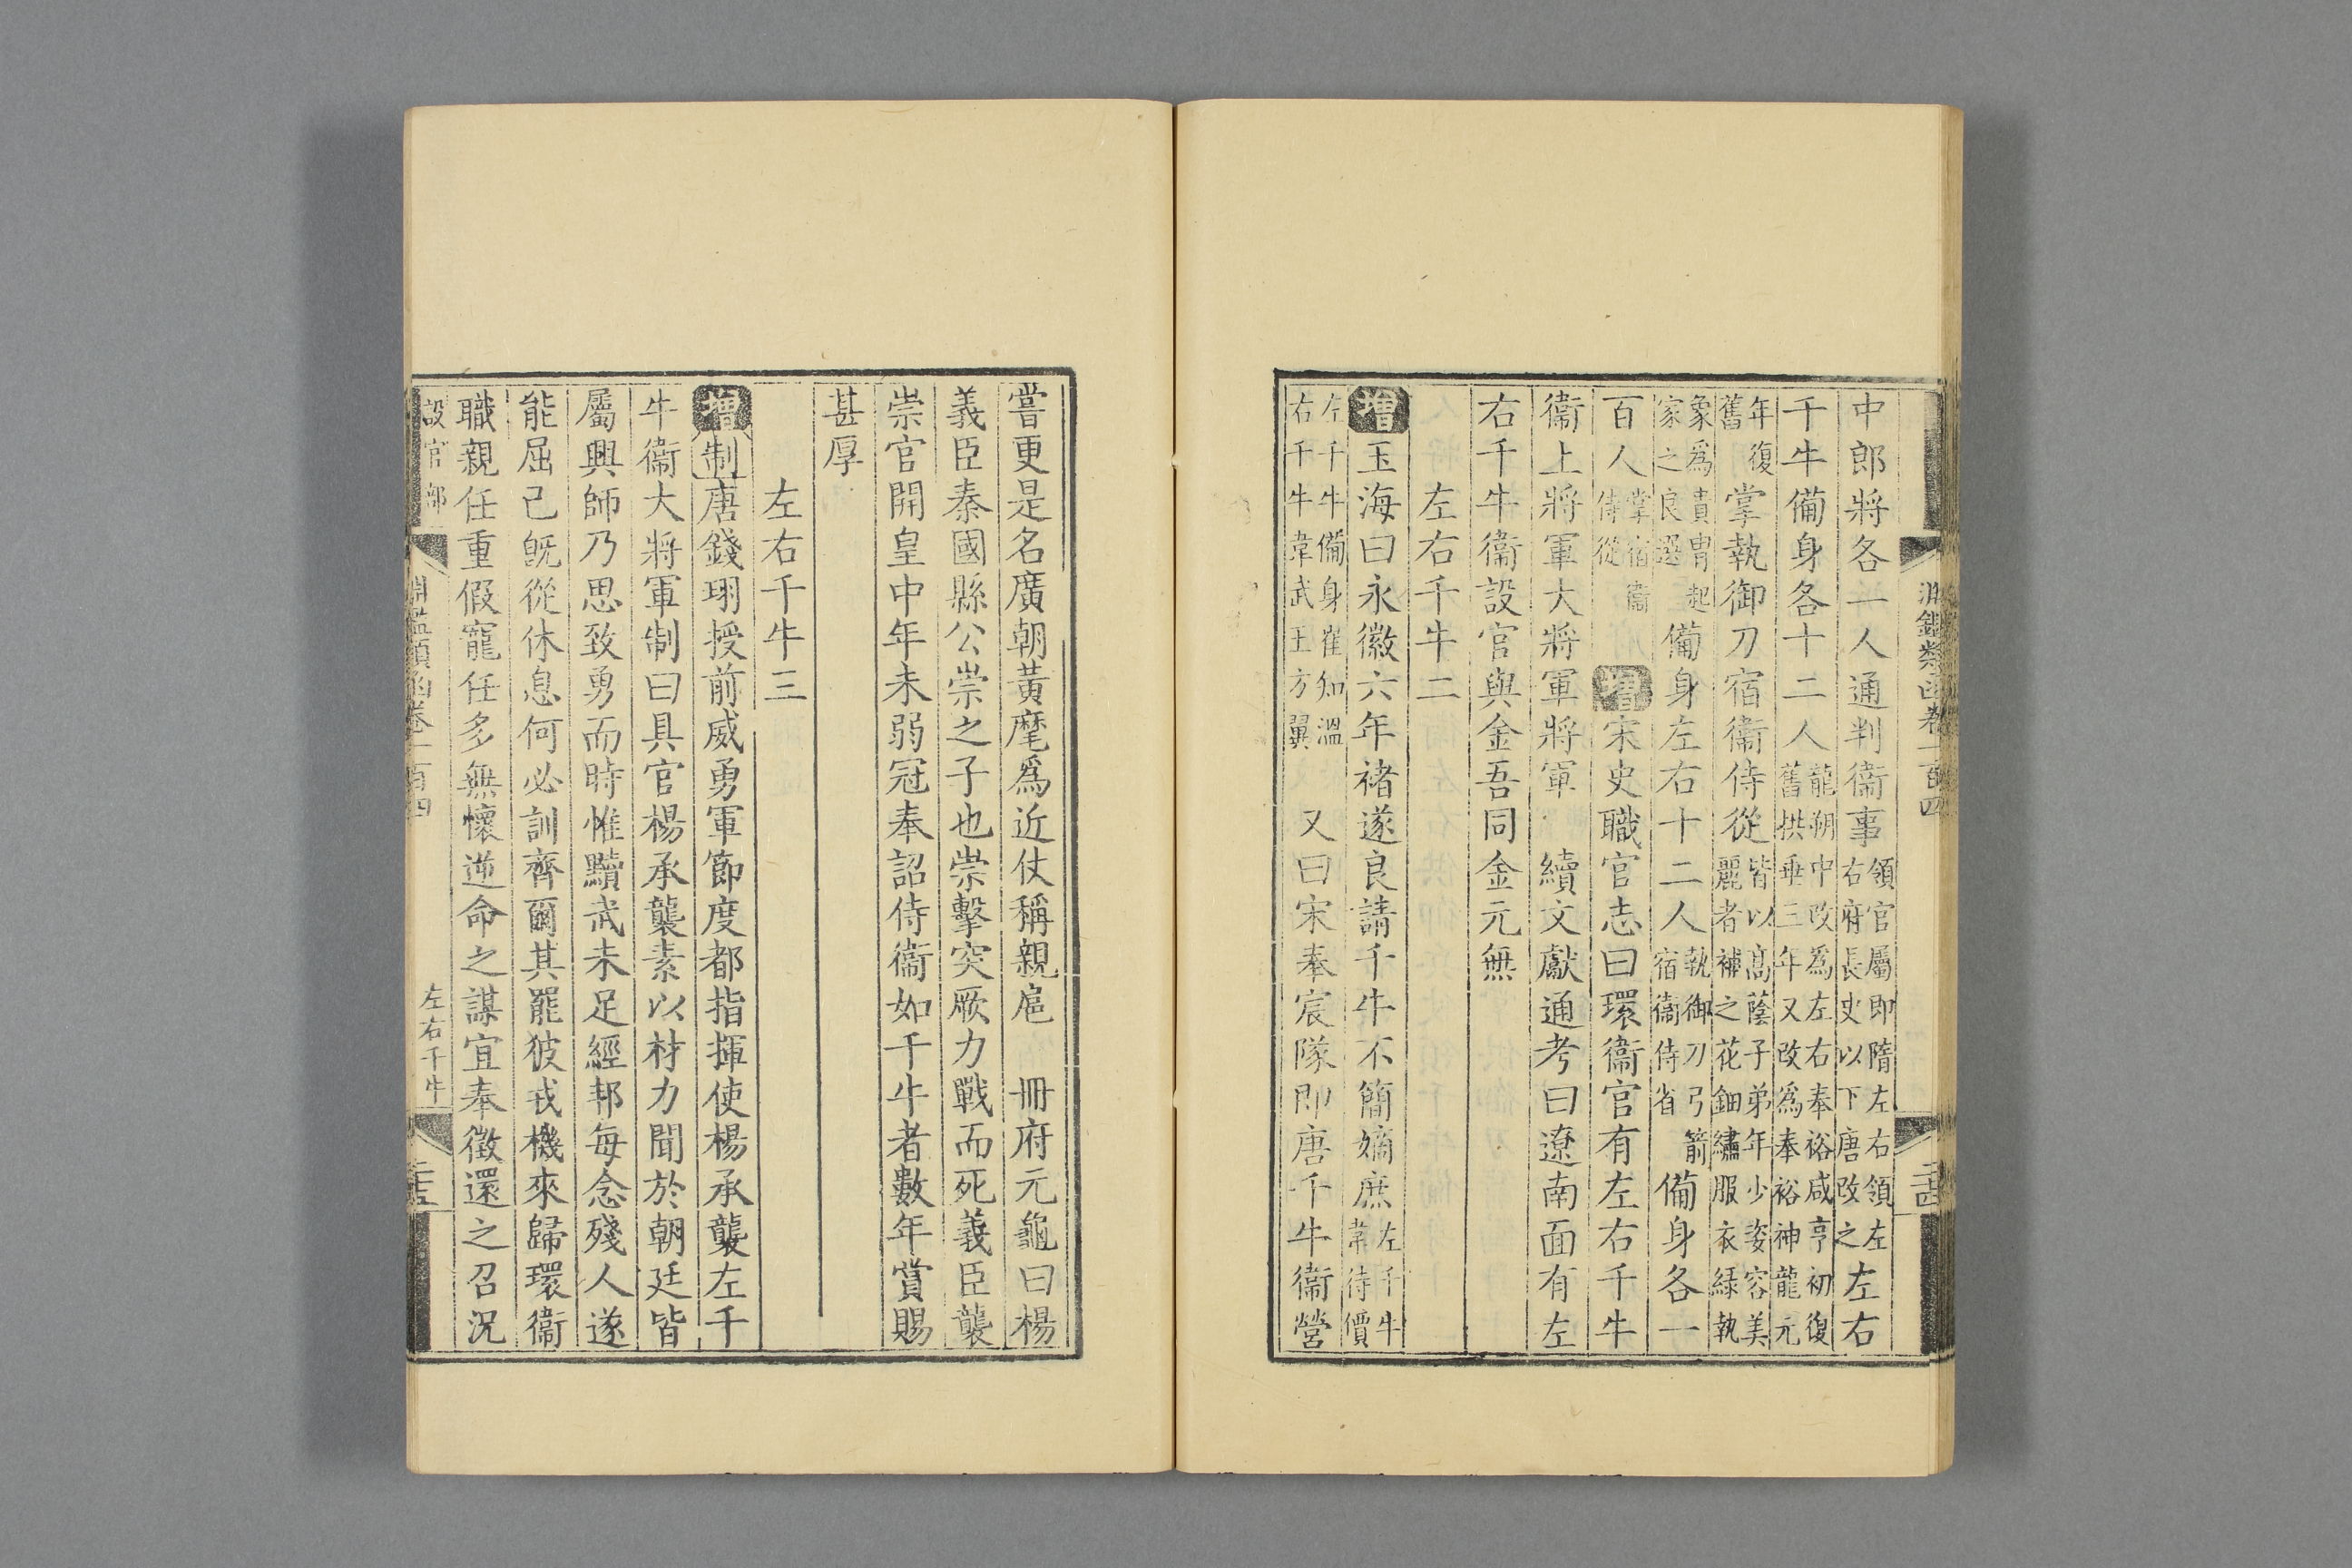 淵鑑類函卷一百四
二十四
中郎將各一人通判衞事領官屬即隋左右領左右府長史以下唐改之左右
千牛備身各十二人龍朔中改爲左右奉裕咸亨初復舊拱垂三年又改爲奉裕神龍元
年復舊掌執御刀宿衞侍從皆以高蔭子弟年少姿容美麗者補之花鈿繡服衣綠執
象爲貴胄起家之良選備身左右十二人執御刀弓箭宿衞侍省備身各一
百人掌宿衞侍從增宋史職官志曰環衞官有左右千牛
衞上將軍大將軍將軍 續文獻通考曰遼南面有左
右千牛衞設官與金吾同金元無
左右千牛二
增玉海曰永徽六年褚遂良請千牛不簡嫡庶左千牛韋待價
左千牛備身崔知溫右千牛韋武王方翼 又曰宋奉宸隊即唐千牛衞營
嘗更是名廣朝黃麾爲近仗稱親扈 冊府元龜曰楊
義臣秦國縣公崇之子也崇擊突厥力戰而死義臣襲
崇官開皇中年未弱冠奉詔侍衞如千牛者數年賞賜
甚厚
左右千牛三
增制唐錢珝授前威勇軍節度都指揮使楊承襲左千
牛衞大將軍制曰具官楊承襲素以材力聞於朝廷皆
屬興師乃思致勇而時惟黷武未足經邦每念殘人遂
能屈己旣從休息何必訓齊爾其罷彼戎機來歸環衞
職親任重假寵任多無懷逆命之謀宜奉徵還之召況
設官部
淵鑑類函卷一百四
左右千牛
二十五